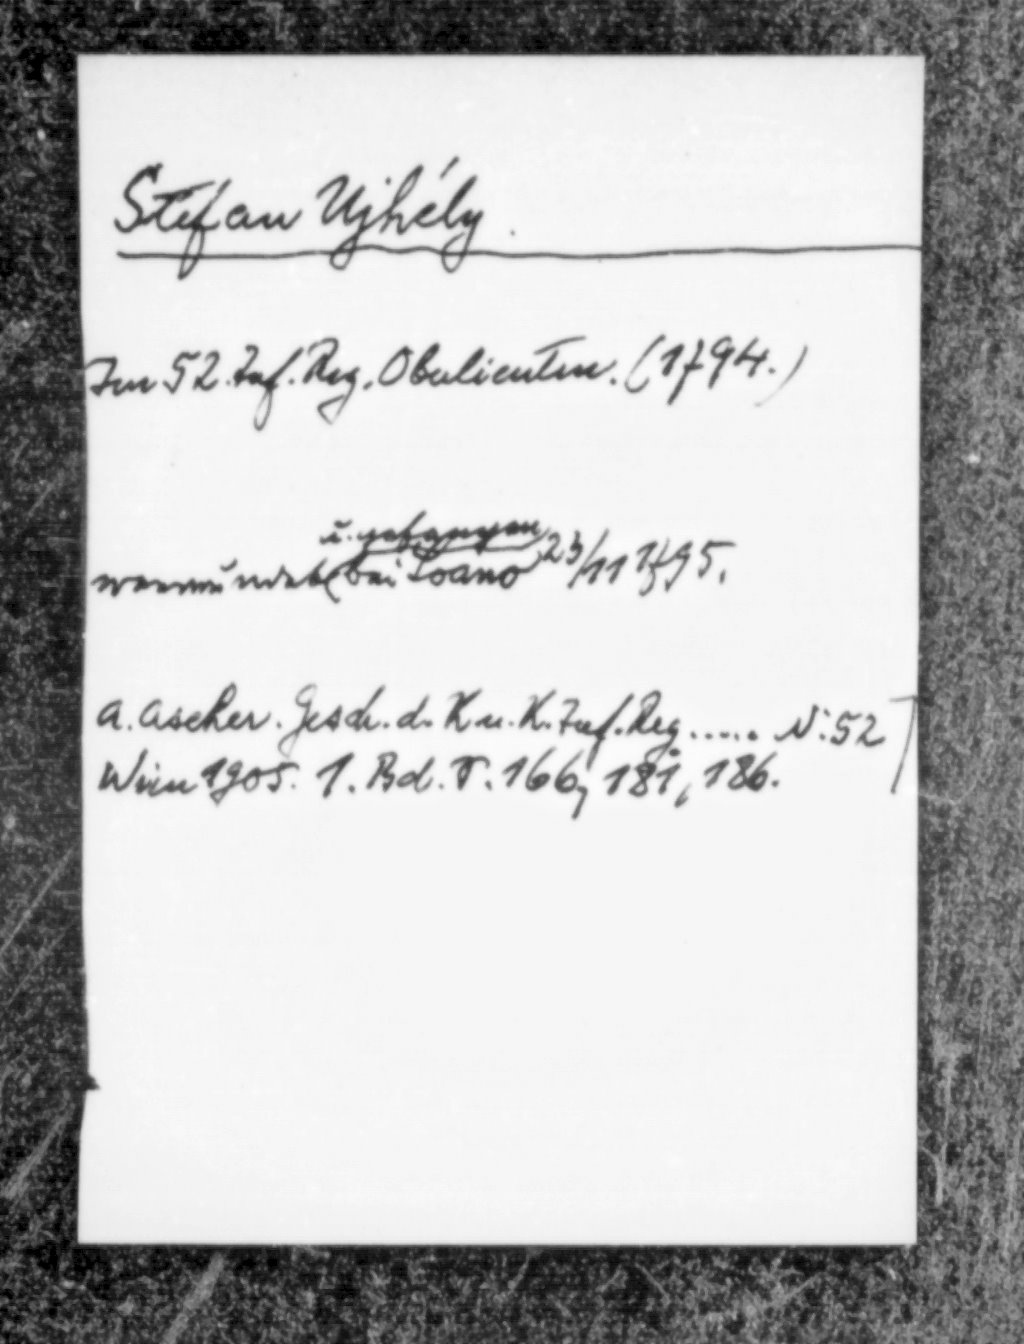 Stefan Ujhély.
Im 52. Inf. Reg. Obulieutm. (1794.)
u. gefangen
verwundet (bei Loano 23/11 1795.
A. Ascher. Gesch. d. K. u. K. Inf. Reg..... N: 52
Wien 1905. 1. Bd. S. 166, 181, 186.